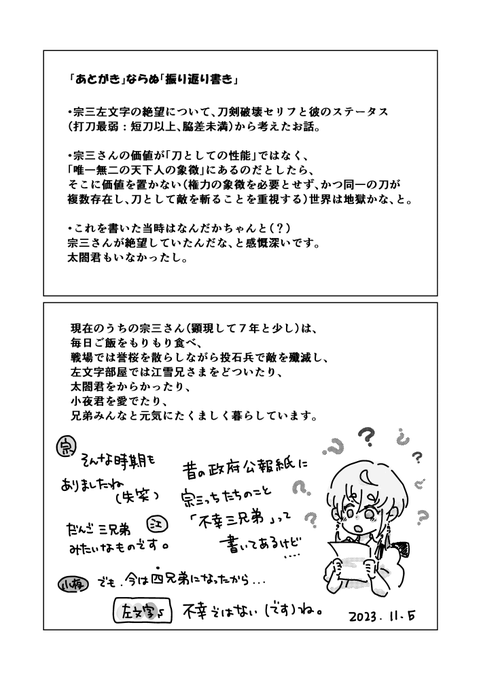 「あとがき」ならぬ「振り返り書き」
・宗三左文字の絶望について、刀剣破壊セリフと彼のステータス
（打刀最弱：短刀以上、脇差未満）から考えたお話。
・宗三さんの価値が「刀としての性能」ではなく、
「唯一無二の天下人の象徴」にあるのだとしたら、
そこに価値を置かない（権力の象徴を必要とせず、かつ同一の刀が
複数存在し、刀として敵を斬ることを重視する）世界は地獄かな、と。
・これを書いた当時はなんだかちゃんと（？）
宗三さんが絶望していたんだな、と感慨深いです。
太閤君もいなかったし。
現在のうちの宗三さん（顕現して７年と少し）は、
毎日ご飯をもりもり食べ、
戦場では誉桜を散らしながら投石兵で敵を殲滅し、
左文字部屋では江雪兄さまをどついたり、
太閤君をからかったり、
小夜君を愛でたり、
兄弟みんなと元気にたくましく暮らしています。
宗
そんな時期も
ありましたね
（失笑）
昔の政府公報紙に
宗三っちたちのこと
「不幸三兄弟」って
書いてあるけど
....
江
だんご三兄弟
みたいなものです。
小夜
でも、今は四兄弟になったから...
左文字's
不幸ではない（です）ね。
2023. 11. 5